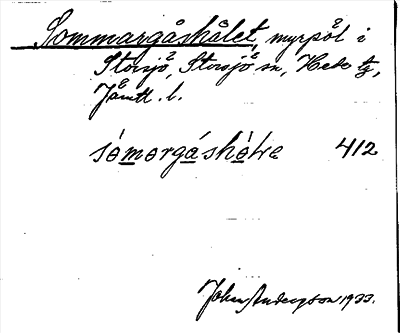 Sommargåshålet, myrpöl i
Storsjö, Storsjö sn, Hede tg,
Jämtl. l.
sómorgáshòlre 412
Johan Andersson 1933.